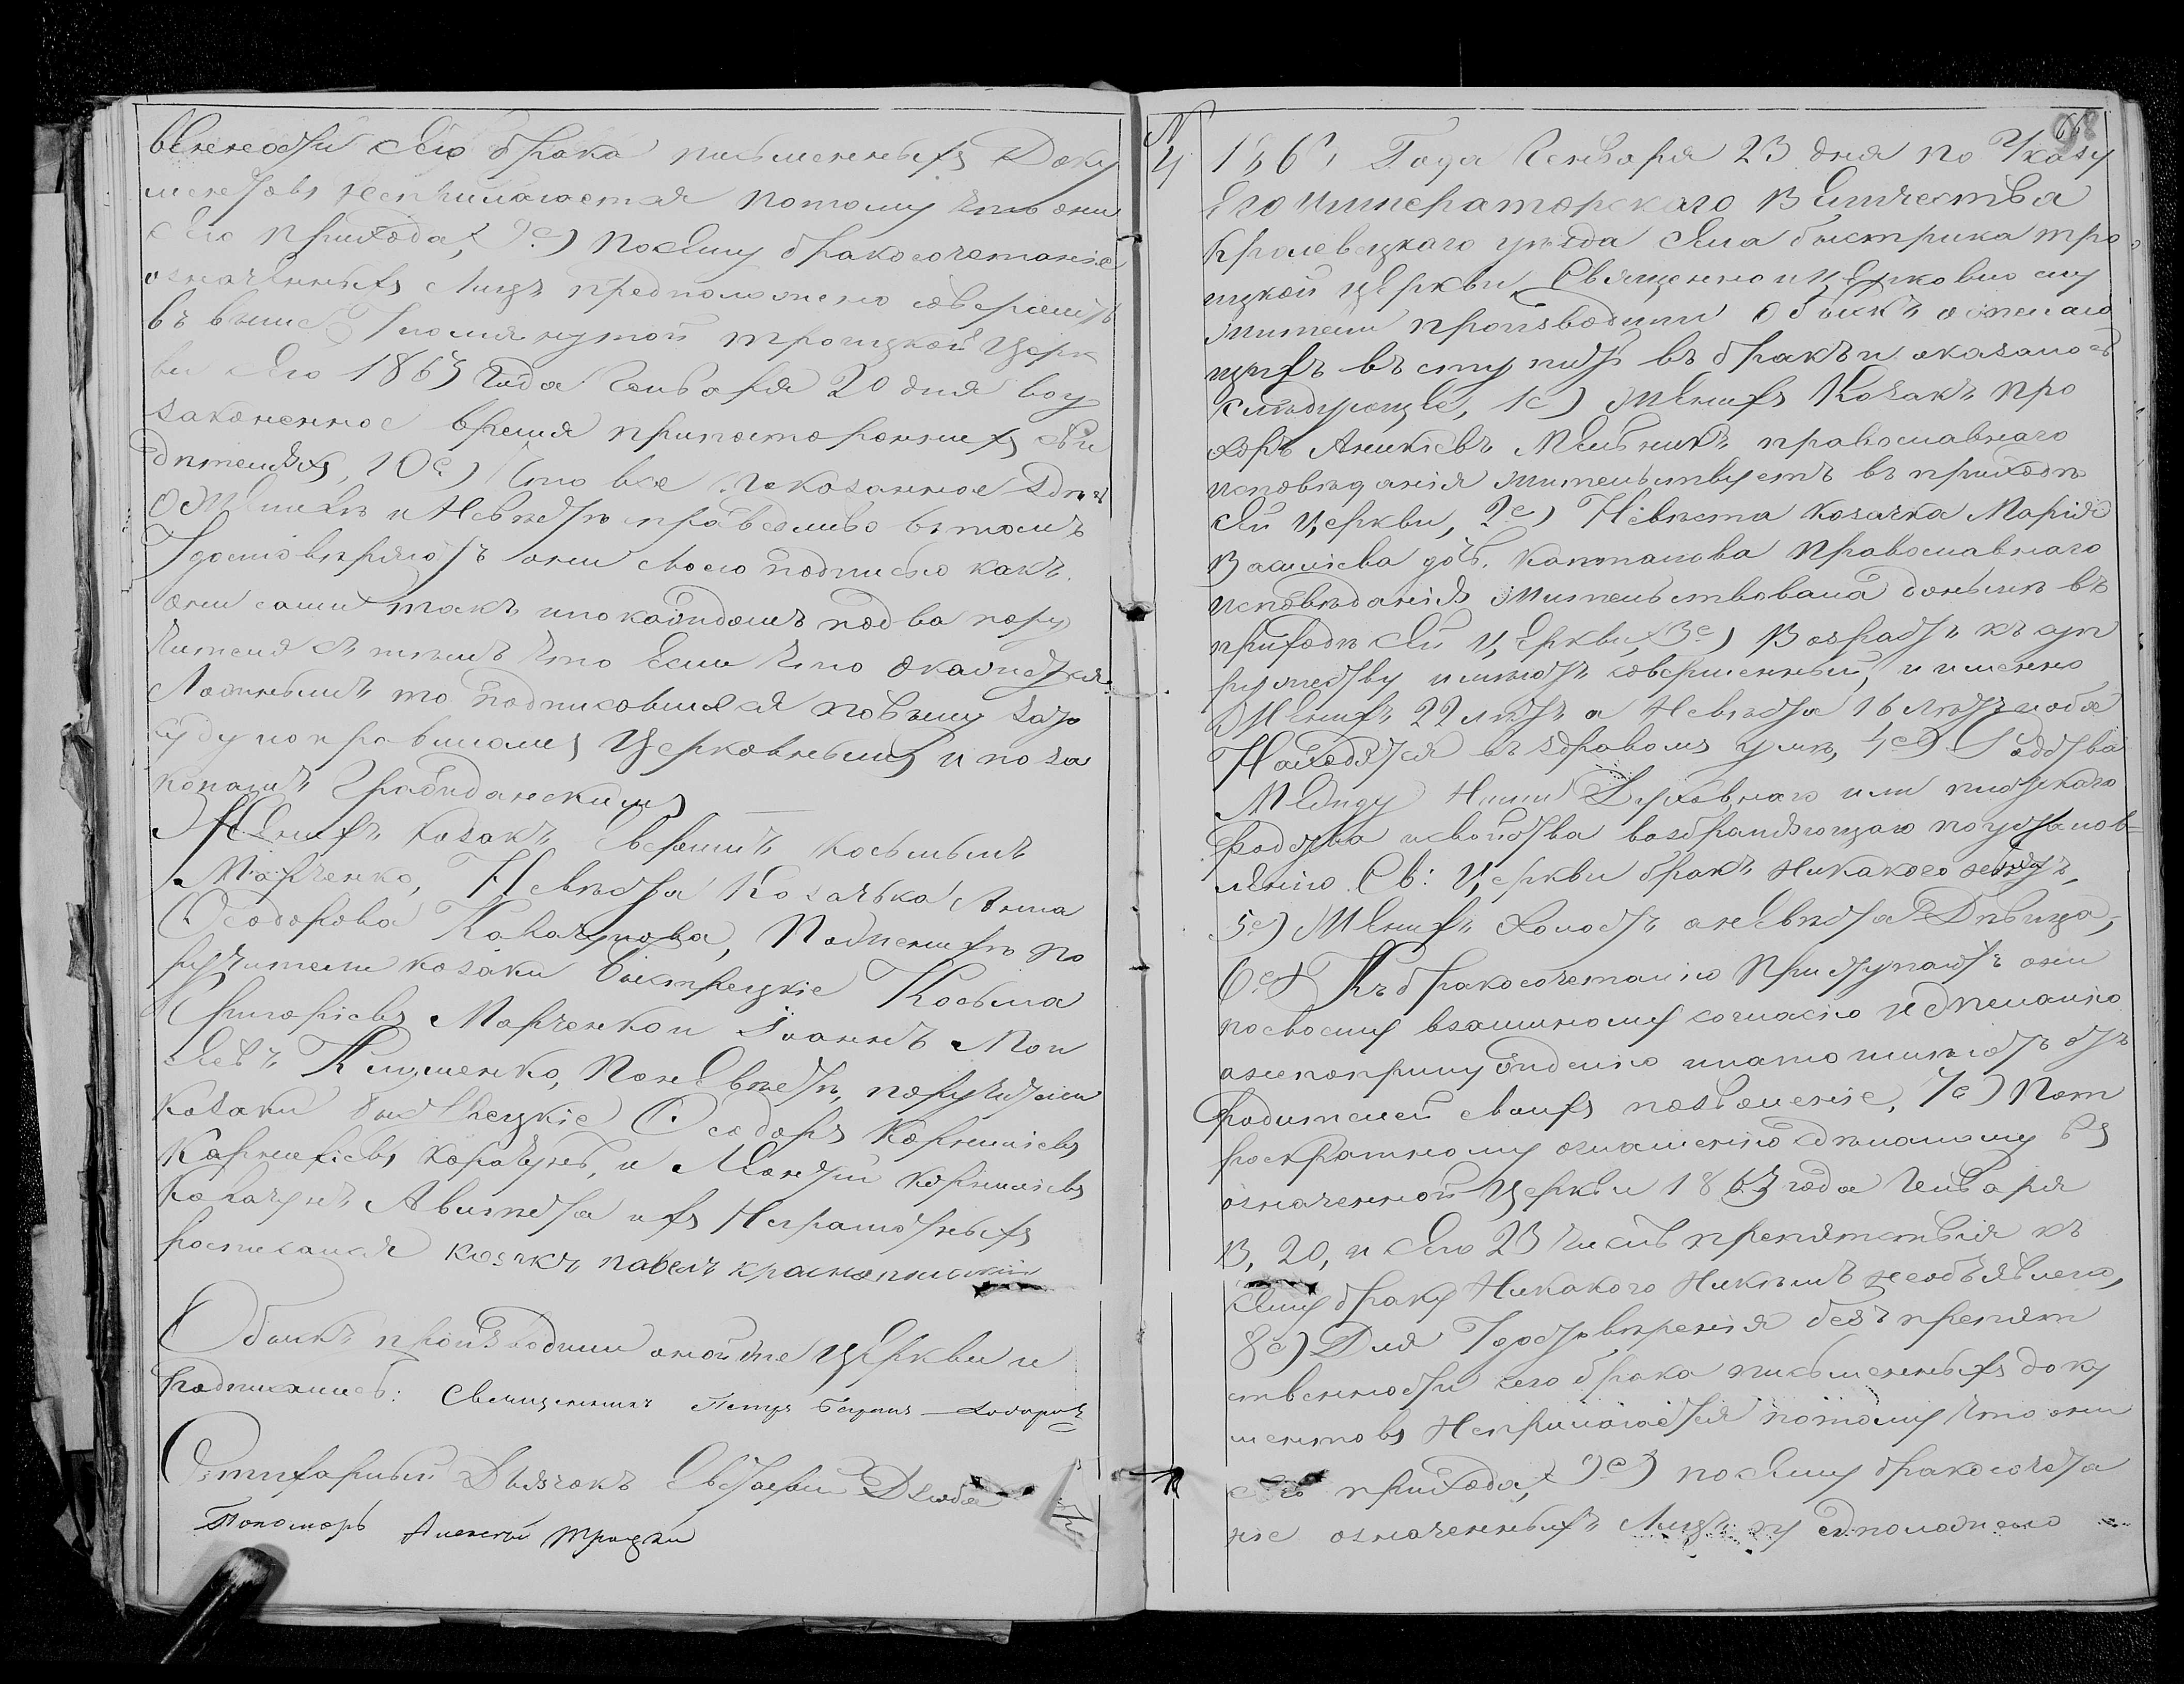 венности сего брака письменныхъ Доку
ментовъ неприлагается потому что они
сего прихода, 9е) Посему бракосочетаніе
означенныхъ лицъ предположено совершить
въ вышеупомянутой троицкой Церк
ви сего 1863 года Генваря 20 дня воу
законенное время припостороннихъ сви
дителяхъ, 10е) Что все показанное здесь
О Женихе и Невесте справедливо втомъ
Удостоверяютъ они своею подписью какъ
они сами такъ ипокаждомъ подва пору
чителя стемъ что Если что окажется
Ложнымъ то подписавшіяся повинны
суду поправиламъ Церковнымъ и поза
конамъ Гражданскимъ
Женихъ козакъ Косьминъ
Марченко, Невѣста Козачька Анна
Ѳеодорова Ковачунова, Поженихѣ по
ручители козаки быстрецкіе Косьма
Григоріевъ Марченко и Іоаннъ Мои
сеевъ Клименко, Поневѣстѣ, поручители
козаки быстрецкіе Ѳеодоръ Корниліевъ
и Корниліевъ
Авместо ихъ Неграмотныхъ
росписался козакъ павелъ
Обыскъ производили оной же Церкви
подписались: Священникъ Петръ
Стихарный Дьячокъ Евстафій Дзюба
Пономарь Алексей Троцкій
N 4 1863 Года Генваря 23 дня по Указу
Его Императорского Величества
Кролевецкаго уѣзда Села быстрика тро
ицкой церкви Священно и Церковно слу
жители производили Обыскъ ожелаю
щихъ вступить въ бракъ и оказалось
следующее, 1е) Женихъ Козакъ Про
хоръ Аникіевъ Мельникъ православнаго
исповѣданія жительствуетъ въ приходѣ
сей Церкви, 2е) Невѣста козачка Марія
Василіева доч. Каптанова Православнаго
исповѣданія жительствовала донынѣ въ
приходѣ сей Церкви, 3е) Возрастъ къ суп
ружеству имѣютъ совершенный, и именно
Женихъ 22 лѣтъ а Невѣста 16 лѣтъ и оба
Находятся въ здравомъ умѣ, 4е) Родства
Между Ними Духовнаго или плотскаго
родства исвойства возбраняющаго поустанов-
ленію Св: Церкви бракъ никакого нетъ,
5е) Женихъ Холостъ аневѣста Дѣвица,
6е) Къ бракосочетанію Приступаютъ они
посвоему взаимному согласію и желанію
анепопринужденію инато имѣютъ отъ
родителей своихъ позволеніе, 7е) Потт
роекратному оглашенію сдѣланому въ
означенной Церкви 1863 года Генваря
13, 20, и сего 23 числъ препятствія къ
сему браку Никакого Никѣмъ необъявлено,
8е) Для Удостовѣренія безъ препят
ственности сего брака письменныхъ доку
ментовъ Неприлагается потому что они
сего прихода, 9е) посему бракосочета
ніе означенныхъ Лицъ предположено